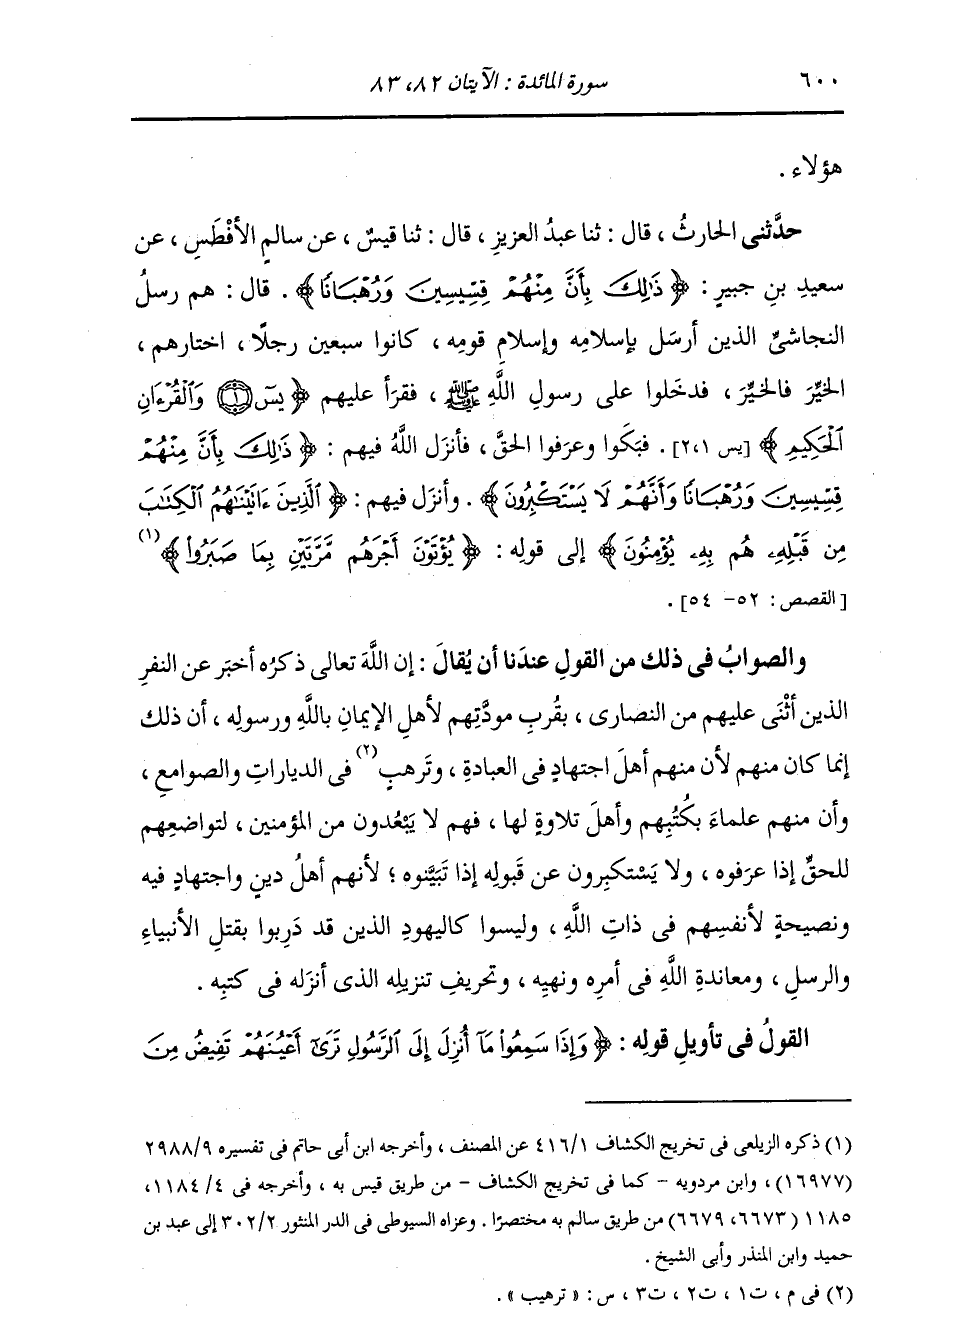 ٦٠٠ سورة المائدة : الآيتان ٨٢، ٨٣
هؤلاء .
حدَّثنى الحارثُ ، قال : ثنا عبدُ العزيزِ ، قال : ثنا قيسٌ ، عن سالمٍ الأفْطَسِ ، عن
سعيدِ بنِ جبيرٍ : ﴿ ذَٰلِكَ بِأَنَّ مِنْهُمْ قِسِّيسِينَ وَرُهْبَانًا ﴾ . قال : هم رسلُ
النجاشىِّ الذين أرسَل بإسلامِه وإسلامِ قومِه ، كانوا سبعين رجلًا ، اختارهم ،
الخيِّرَ فالخيِّرَ ، فدخَلوا على رسولِ اللَّهِ ﷺ ، فقرَأ عليهم ﴿ يسٓ ۝١ وَٱلْقُرْءَانِ
ٱلْحَكِيمِ ﴾ [يس ١، ٢] . فبَكَوا وعرَفوا الحقَّ ، فأنزَل اللَّهُ فيهم : ﴿ ذَٰلِكَ بِأَنَّ مِنْهُمْ
قِسِّيسِينَ وَرُهْبَانًا وَأَنَّهُمْ لَا يَسْتَكْبِرُونَ ﴾ . وأنزَل فيهم : ﴿ ٱلَّذِينَ ءَاتَيْنَٰهُمُ ٱلْكِتَٰبَ
مِن قَبْلِهِۦ هُم بِهِۦ يُؤْمِنُونَ ﴾ إلى قولِه : ﴿ يُؤْتَوْنَ أَجْرَهُم مَّرَّتَيْنِ بِمَا صَبَرُوا۟ ﴾(١)
[القصص : ٥٢- ٥٤] .
والصوابُ فى ذلك من القولِ عندَنا أن يُقالَ : إن اللَّهَ تعالى ذكرُه أخبَر عن النفرِ
الذين أثْنَى عليهم من النصارى ، بقُربِ مودَّتِهم لأهلِ الإيمانِ باللَّهِ ورسولِه ، أن ذلك
إنما كان منهم لأن منهم أهلَ اجتهادٍ فى العبادةِ ، وتَرهبٍ(٢) فى الدياراتِ والصوامعِ ،
وأن منهم علماءَ بكُتُبِهم وأهلَ تلاوةٍ لها ، فهم لا يَبْعُدون من المؤمنين ، لتواضعِهم
للحقِّ إذا عرَفوه ، ولا يَسْتكبِرون عن قَبولِه إذا تَبَيَّنوه ؛ لأنهم أهلُ دينٍ واجتهادٍ فيه
ونصيحةٍ لأنفسِهم فى ذاتِ اللَّهِ ، وليسوا كاليهودِ الذين قد دَرِبوا بقتلِ الأنبياءِ
والرسلِ ، ومعاندةِ اللَّهِ فى أمرِه ونهيِه ، وتحريفِ تنزيلِه الذى أنزَله فى كتبِه .
القولُ فى تأويلِ قولِه : ﴿ وَإِذَا سَمِعُوا۟ مَآ أُنزِلَ إِلَى ٱلرَّسُولِ تَرَىٰٓ أَعْيُنَهُمْ تَفِيضُ مِنَ
(١) ذكره الزيلعى فى تخريج الكشاف ٤١٦/١ عن المصنف ، وأخرجه ابن أبى حاتم فى تفسيره ٢٩٨٨/٩
(١٦٩٧٧) ، وابن مردويه - كما فى تخريج الكشاف - من طريق قيس به ، وأخرجه فى ٤/ ١١٨٤،
١١٨٥ (٦٦٧٣، ٦٦٧٩) من طريق سالم به مختصرًا . وعزاه السيوطى فى الدر المنثور ٣٠٢/٢ إلى عبد بن
حميد وابن المنذر وأبى الشيخ .
(٢) فى م ، ت١ ، ت٢ ، ت٣ ، س : « ترهيب » .